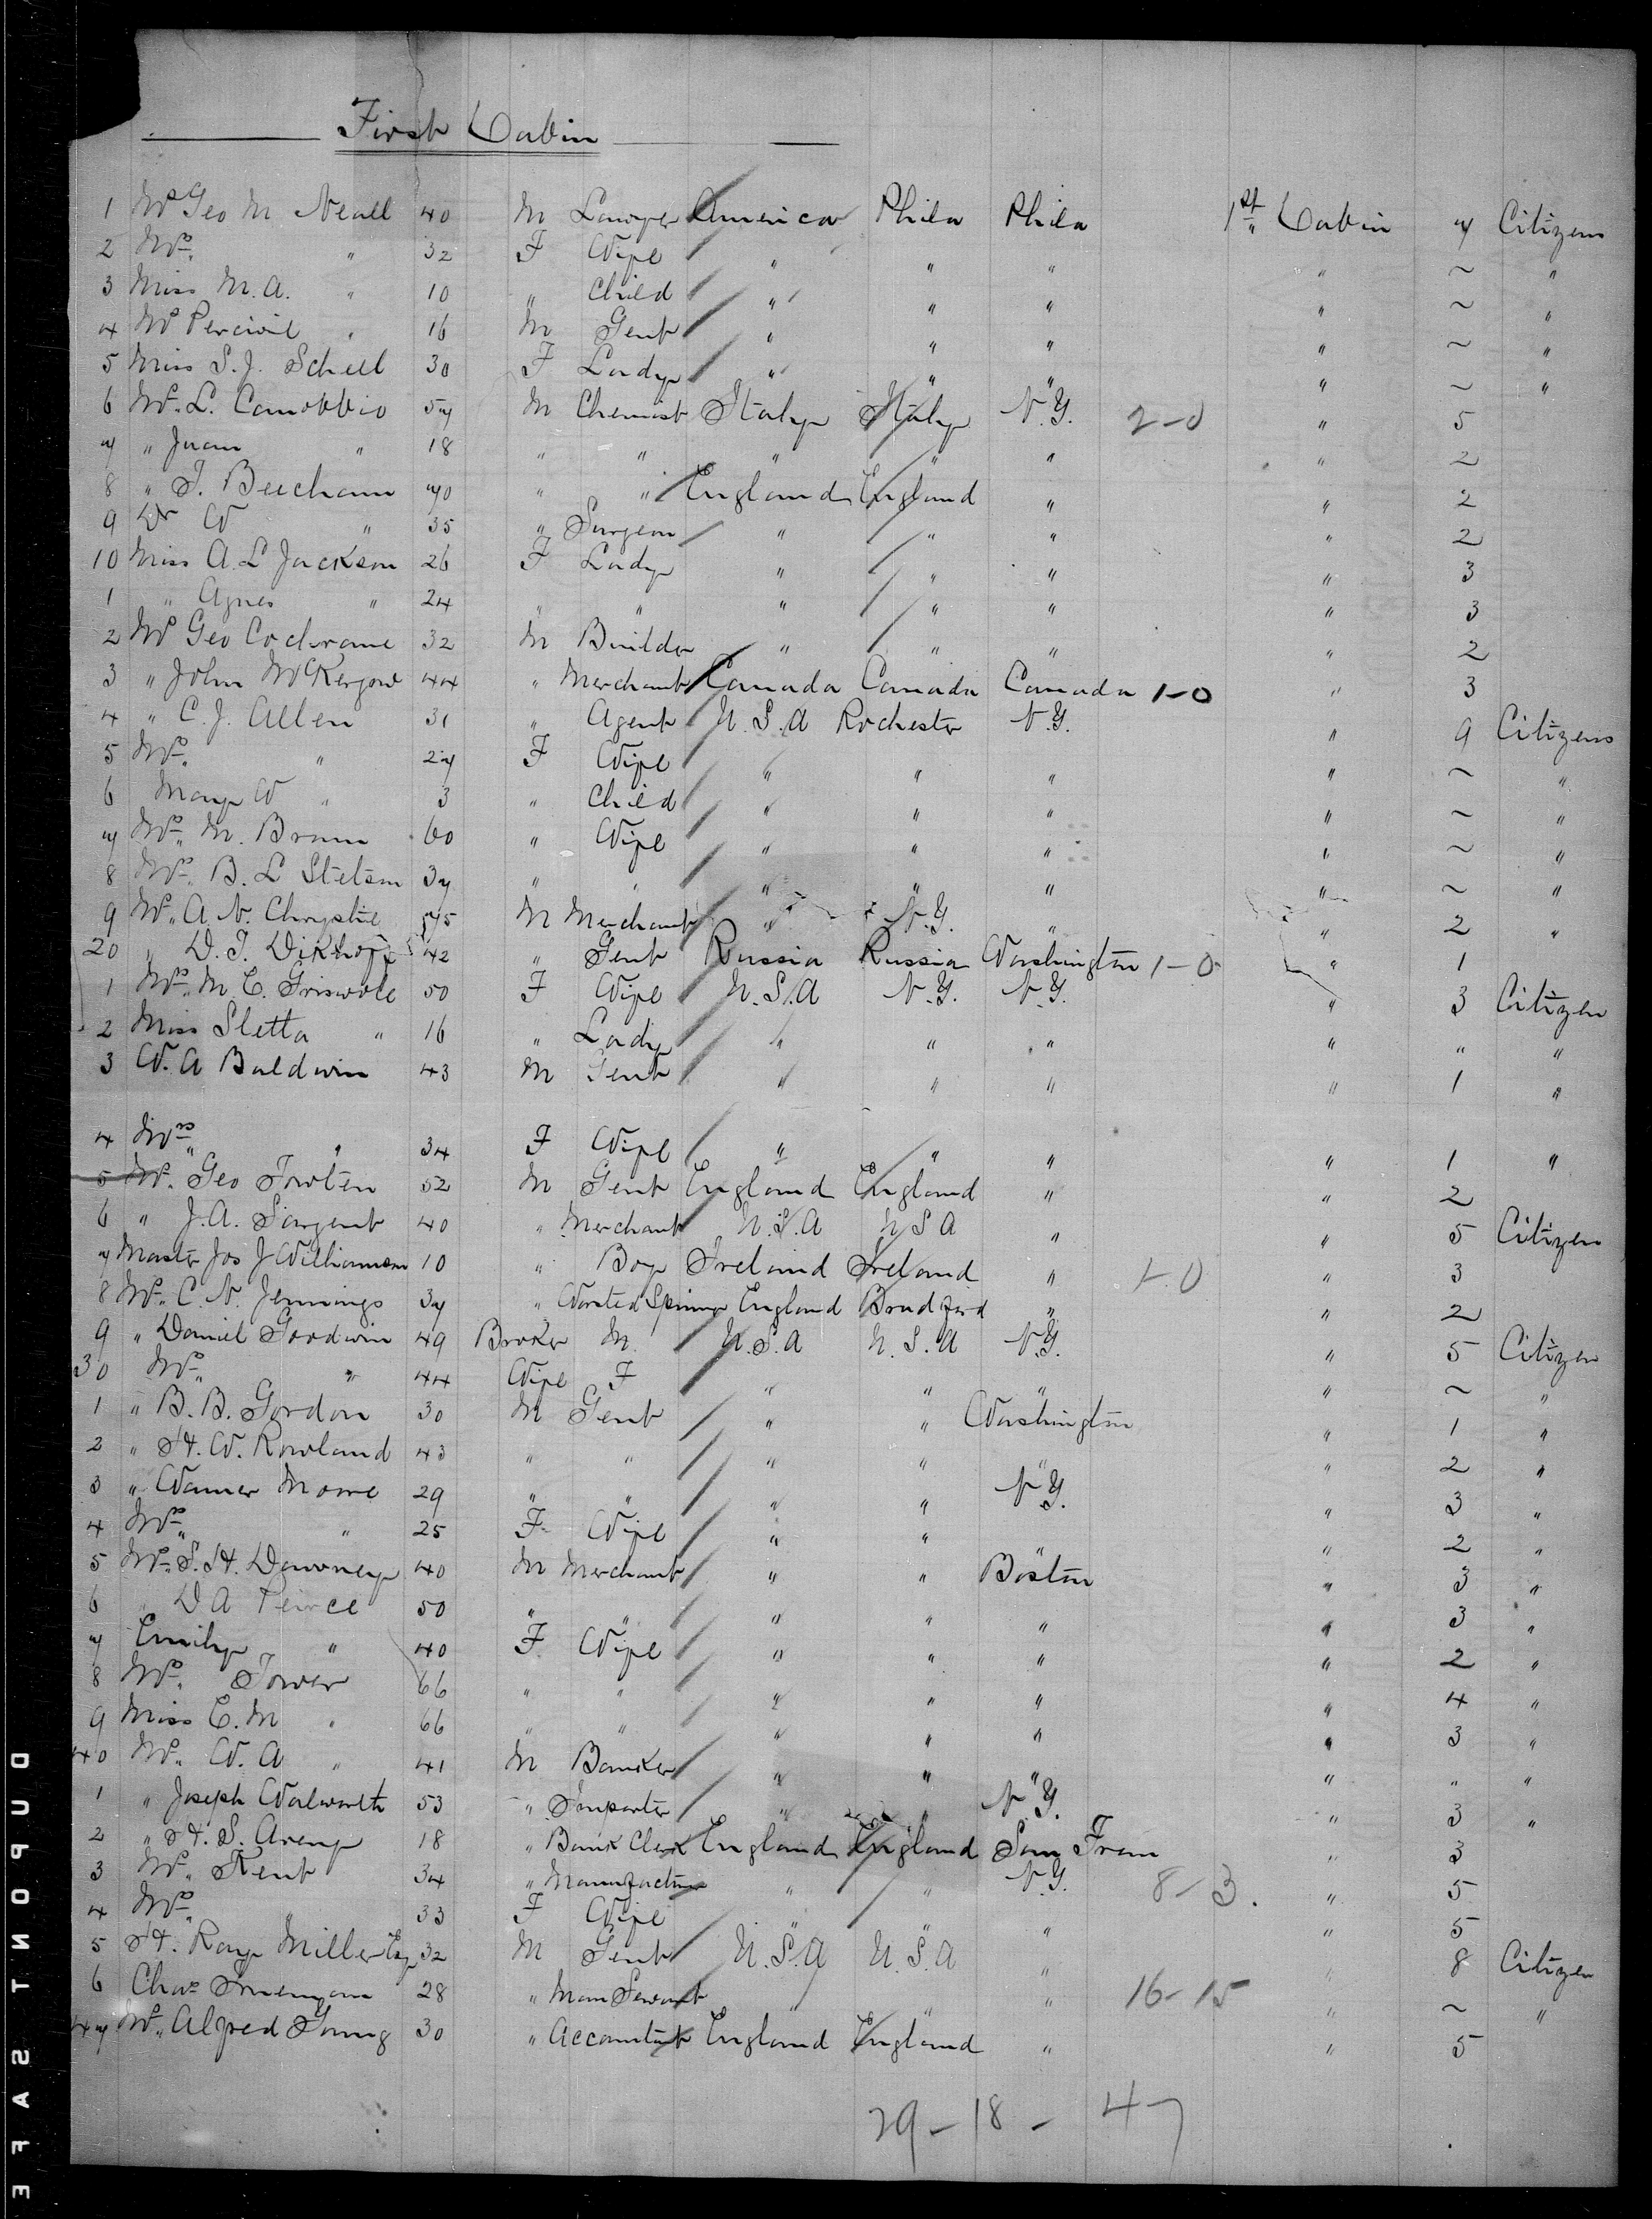 First Cabin
1 Mr Geo M. Neall 40 M Lawyer America Phila Phila 1st Cabin 7 Citizens
2 Mrs. " 32 F Wife " " " " ~ "
3 Miss M.A. " 10 " Child " " " " ~ "
4 Mr Percival " 16 M Gent " " " " ~ "
5 Miss S.J. Schell 30 F Lady " " " " ~ "
6 Mr. L. Canobbio 57 M Chemist Italy Italy N.Y. 2-0 " 5
7 " Juan " 18 " " " " " " 2
8 " T. Beecham 70 " " England England " " 2
9 Dr W " 35 " Surgeon " " " " 2
10 Miss A.L Jackson 26 F Lady " " " " 3
1 " Agnes " 24 " " " " " " 3
2 Mr Geo Cochrane 32 M Builder " " " " 2
3 " John McKergow 44 " Merchant Canada Canada Canada 1-0 " 3
4 " C.J. Allen 31 " Agent U.S.A Rochester N.Y. " 9 Citizens
5 Mrs. " 27 F Wife " " " " ~ "
6 Mary W " 3 " Child " " " " ~ "
7 Mrs. M. Brown 60 " Wife " " " " ~ "
8 Mrs. B. L Stetson 37 " " " " " " ~ "
9 Mr. A.N. Chrystie 45 M Merchant " N.Y. " " 2 "
20 " D.T. 42 " Gent Russia Russia Washington 1-0 " 1
1 Mrs. M.C. Griswold 50 F Wife U.S.A N.Y. N.Y. " 3 Citizen
2 Miss Sletta " 16 " Lady " " " " " "
3 W.A Baldwin 43 M Gent " " " " 1 "
4 Mrs. " 34 F Wife " " " " 1 "
5 Mr. Geo Towlen 52 M Gent England England " " 2
6 " J.A. Sargent 40 " Merchant U.S.A U S A " " 5 Citizen
7 Master Jos J Williamson 10 " Boy Ireland Ireland " 1-0 " 3
8 Mr. C.N. Jennings 37 " Worsted Spinner England Bradford " " 2
9 " Daniel Goodwin 49 Broker M. U.S.A U.S.A N.Y. " 5 Citizen
30 Mrs. " 44 Wife F " " " " ~ "
1 " B.B. Gordon 30 M Gent " " Washington " 1 "
2 " H.W. Rowland 43 " " " " " " 2 "
3 " Warner Moore 29 " " " " N.Y. " 3 "
4 Mrs. " 25 F Wife " " " 2 "
5 Mr. S.H. Downey 40 M Merchant " " Boston " 3 "
6 " D A Peirce 50 " " " " " " 3 "
7 Emily " 40 F Wife " " " " 2 "
8 Mrs. Tower 66 " " " " " " 4 "
9 Miss C.M " 66 " " " " " " 3 "
40 Mr. W. A " 41 M Banker " " " " " "
1 " Joseph Walworth 53 " Importer " " N.Y. " 3 "
2 " H.S. Avery 18 " Bank Clerk England England San Fran " 3
3 Mr. Kent 34 " Manufacturer " " N.Y. 8-3. " 5
4 Mrs. " 33 F Wife " " " " 5
5 H. Ray Miller Esq 32 M Gent U.S.A U.S.A " " 8 Citizen
6 Chas 28 " Man Servant " " " 16-15 " ~ "
47 Mr. Alfred Young 30 " Accountant England England " " 5
29-18-47
DUPONT SAFE